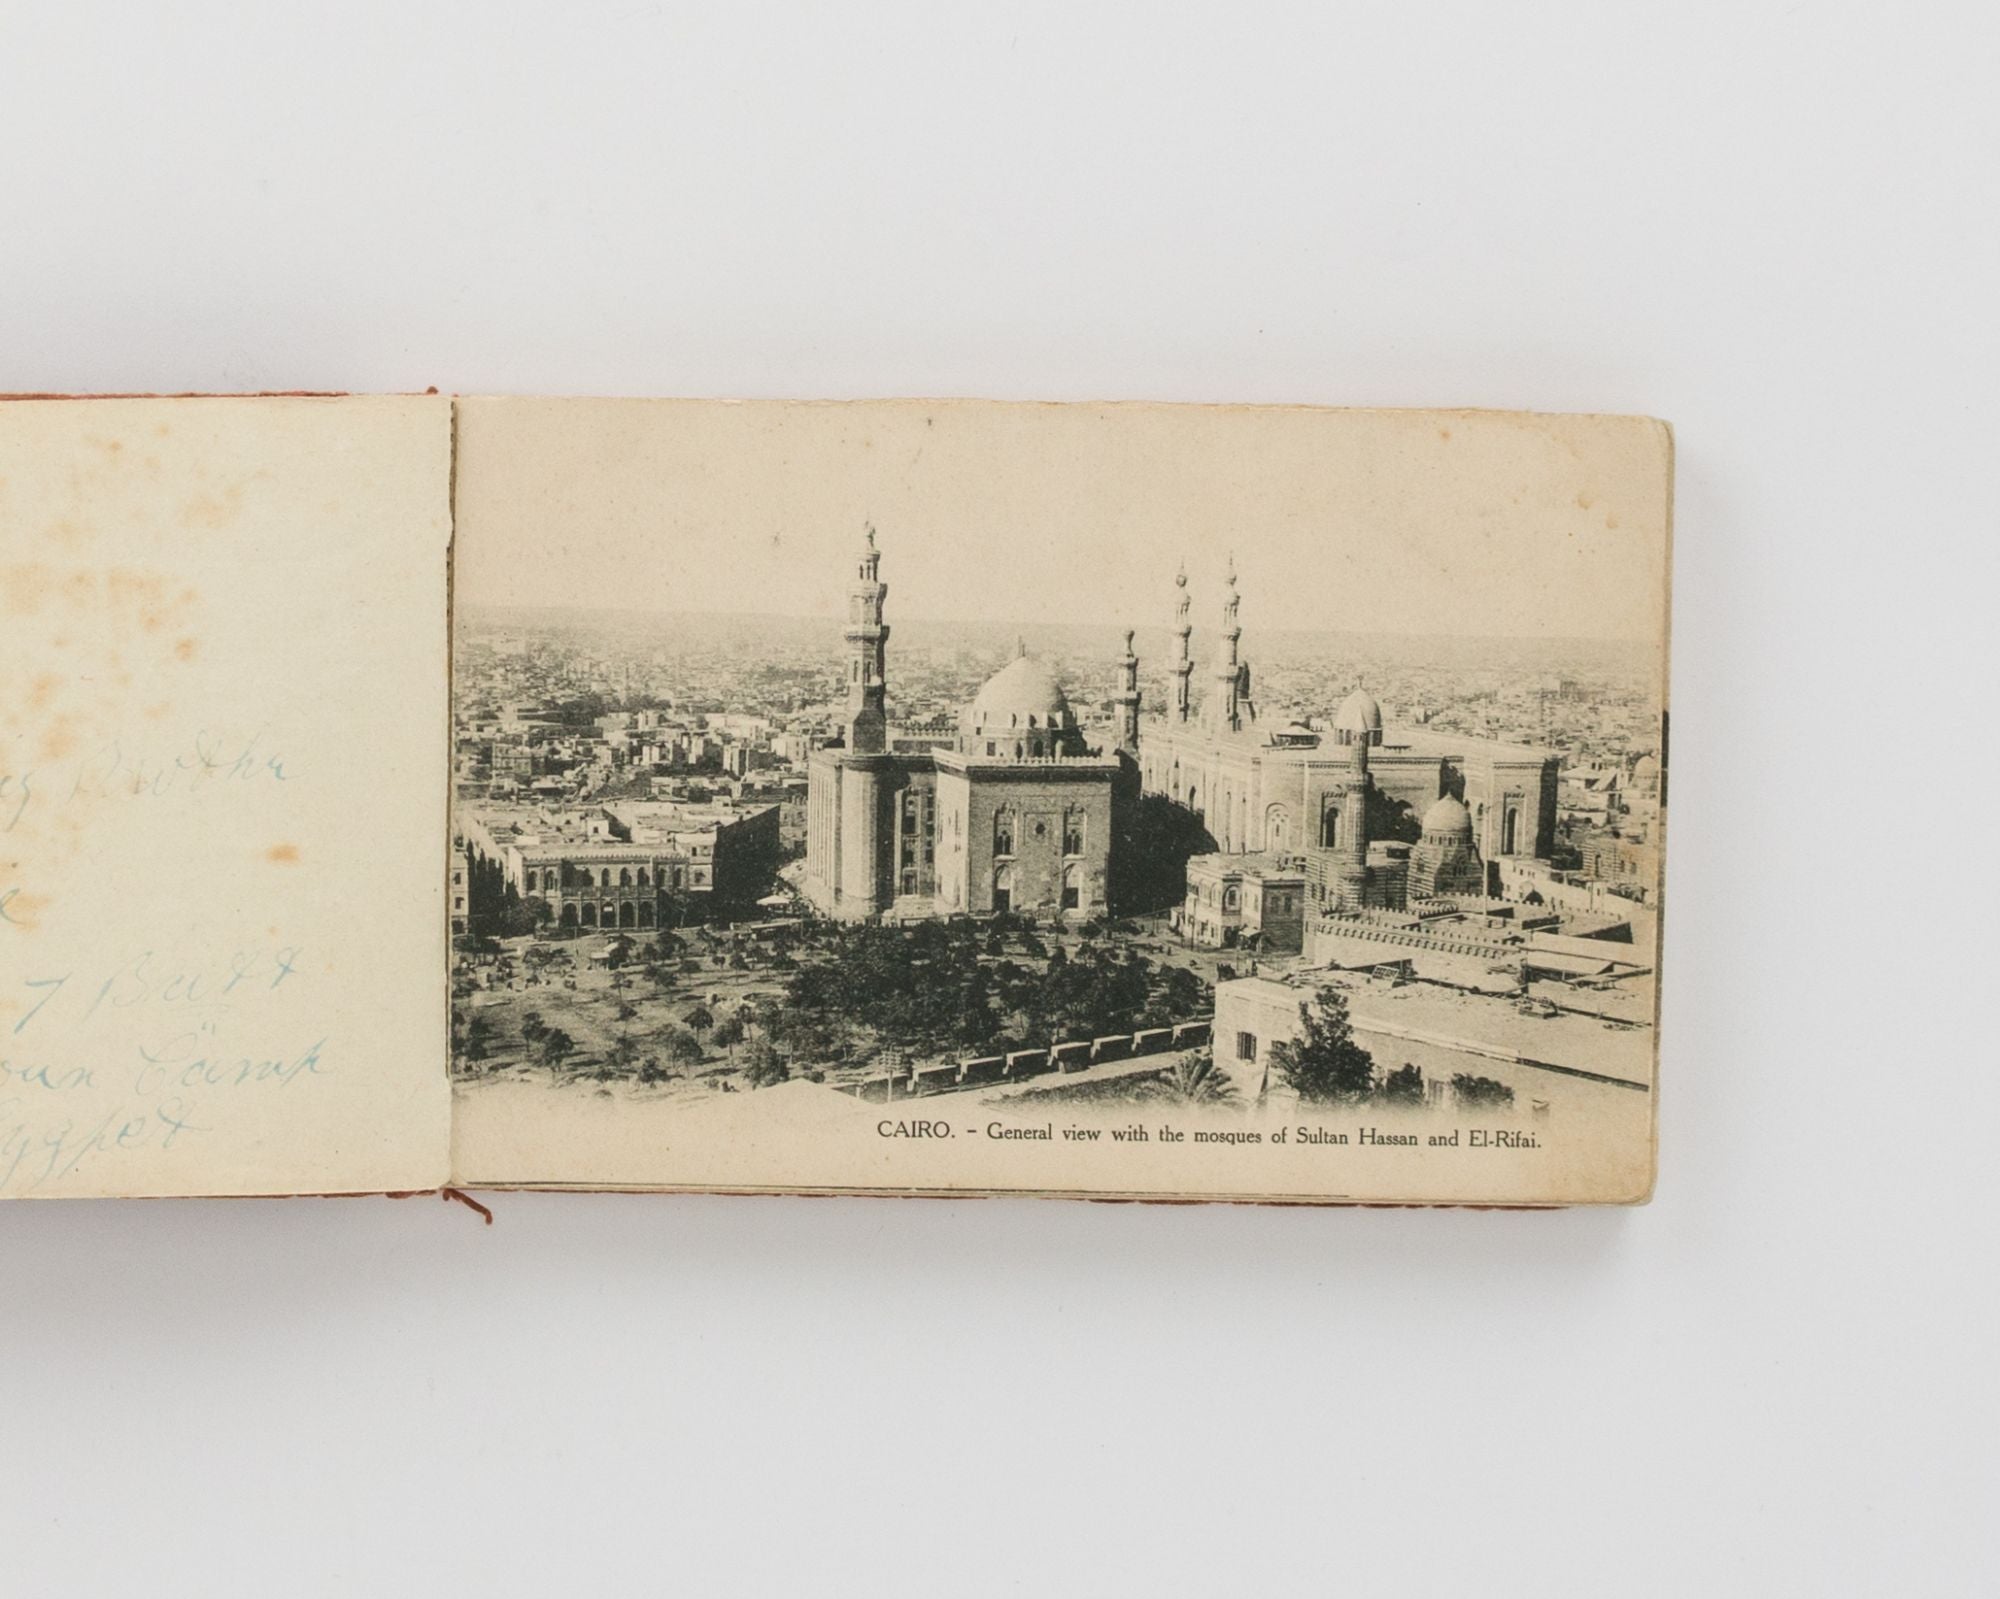 Brother
7 Batt
Camp
Egypet
CAIRO. - General view with the mosques of Sultan Hassan and El-Rifai.